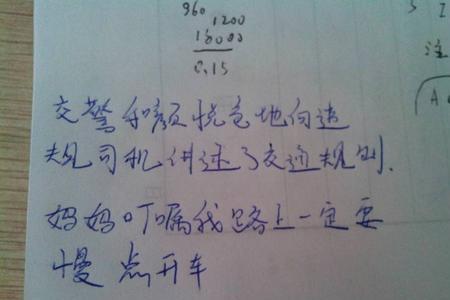 960
1200
18000
0.15
交警和颜悦色地向违
规司机讲述了交通规则.
妈妈叮嘱我路上一定要
慢点开车
注
A